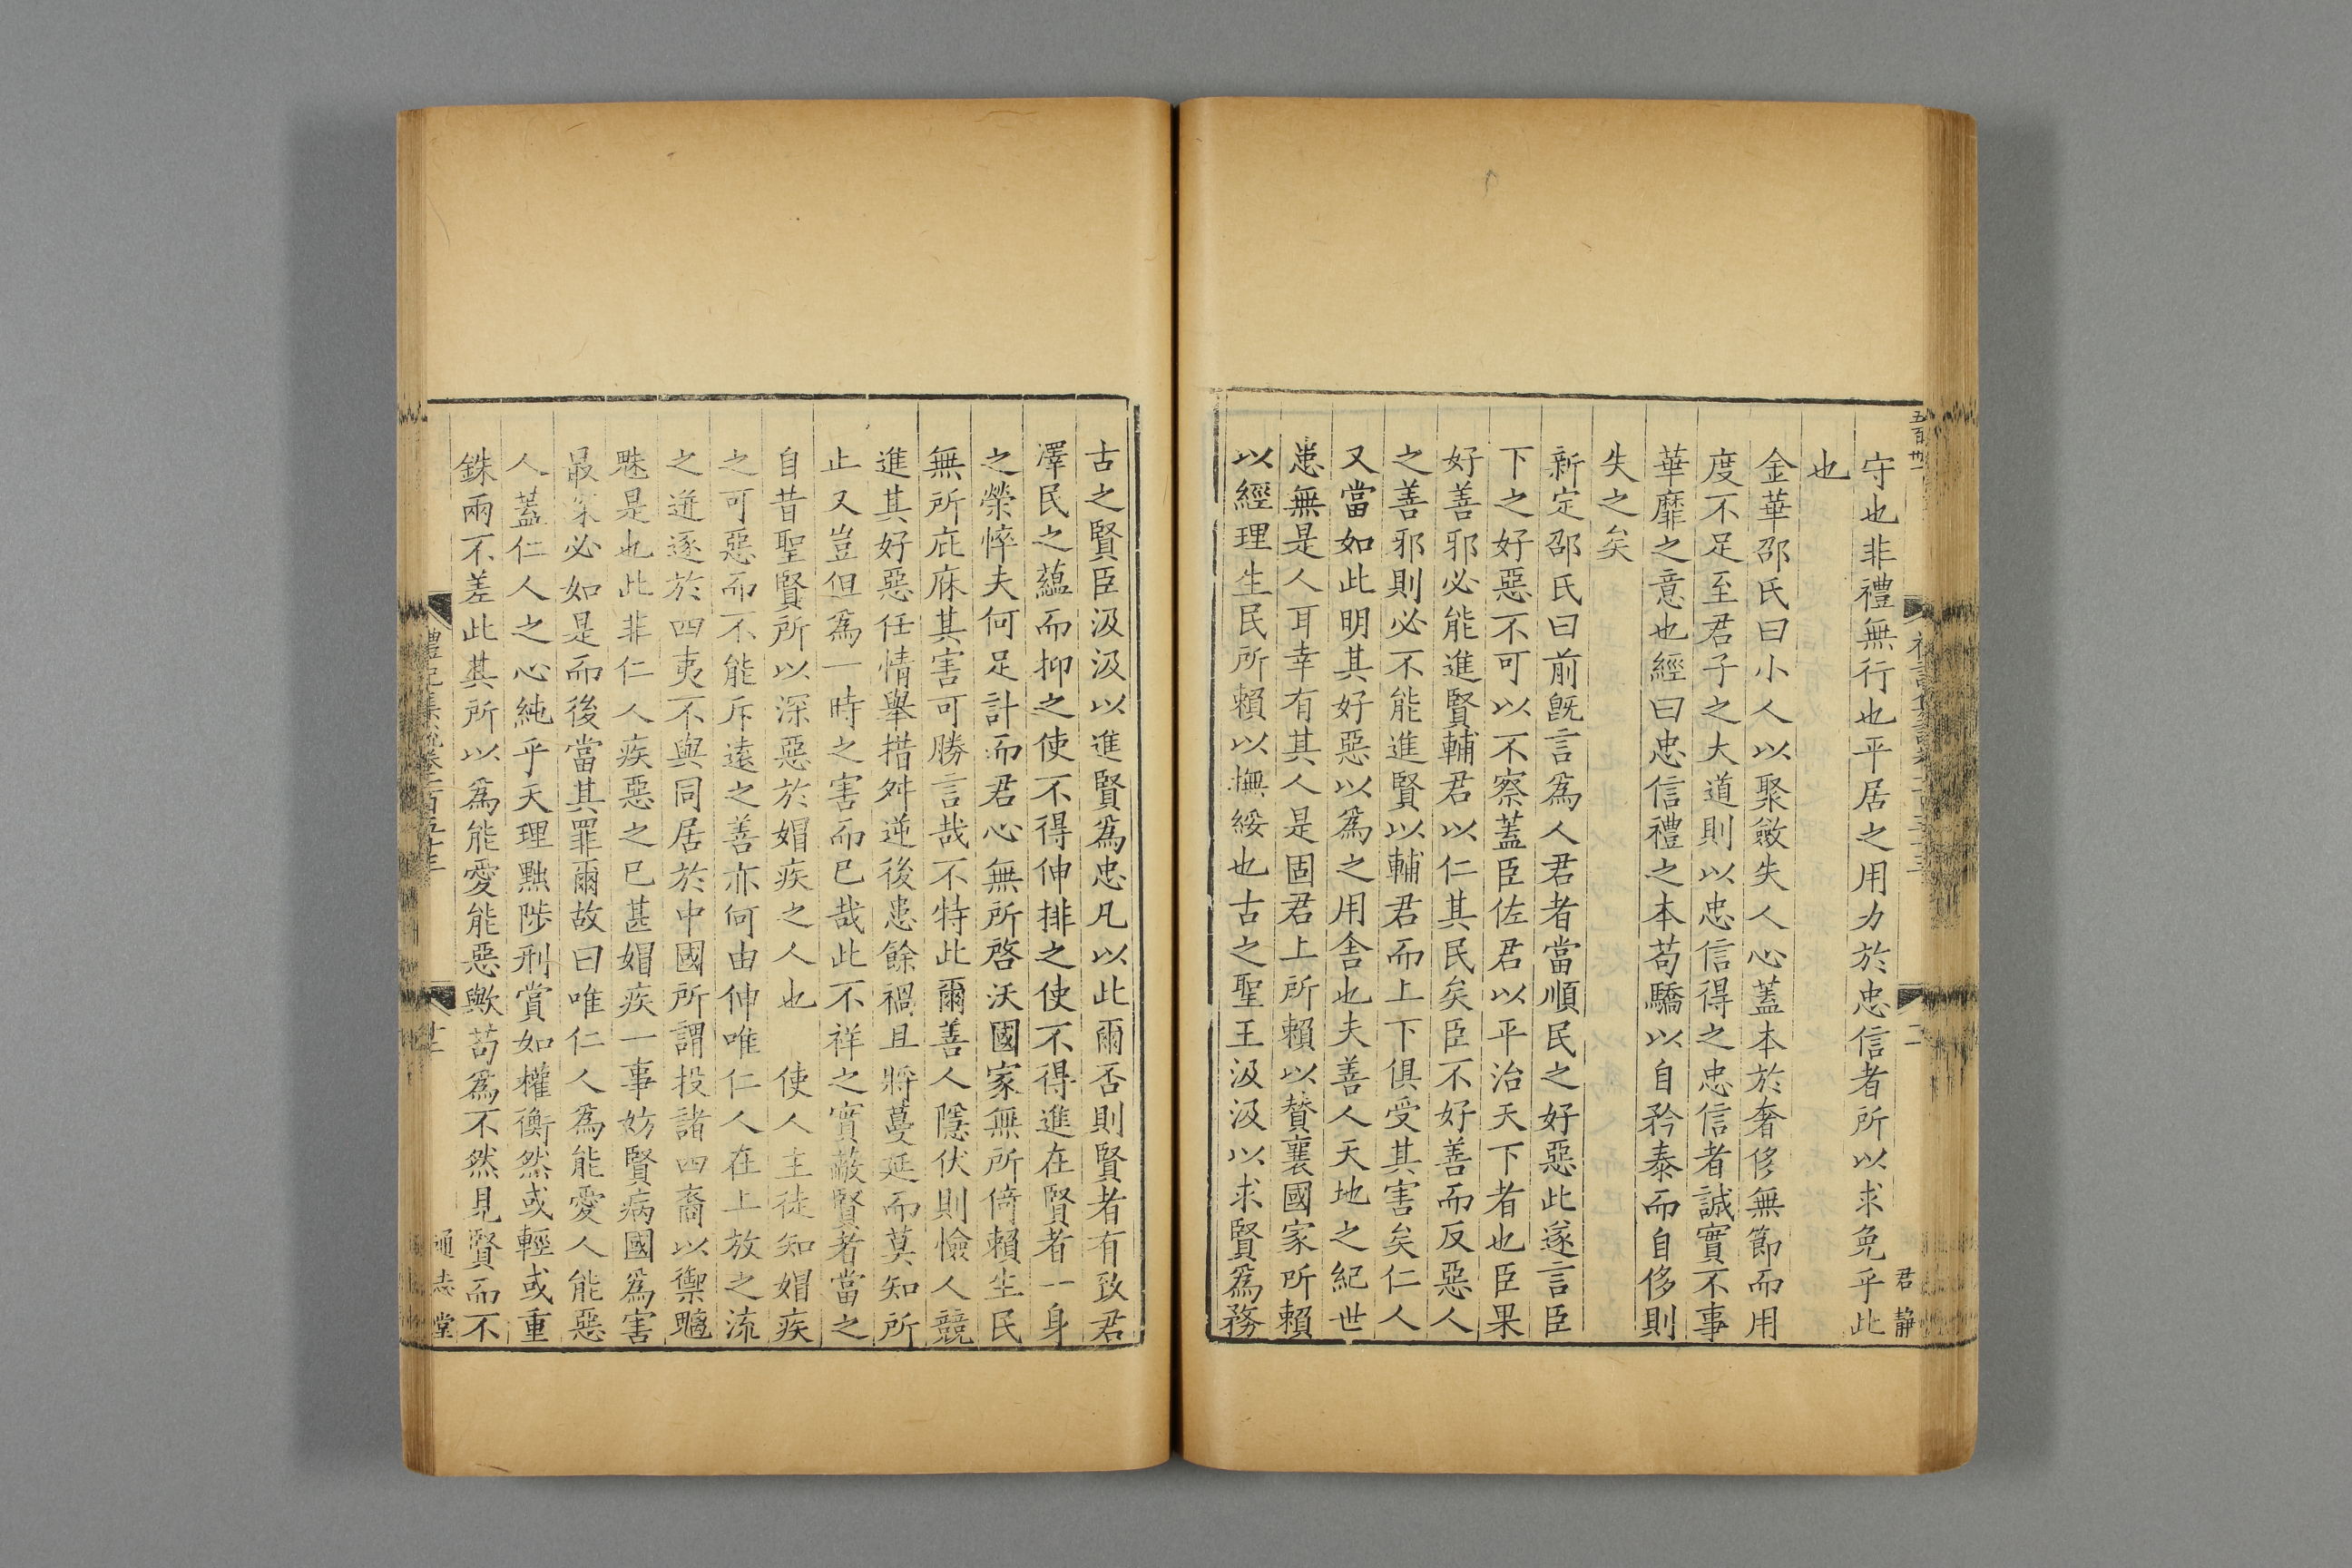 守也非禮無行也平居之用力於忠信者所以求免乎此
也
金華邵氏曰小人以聚斂失人心蓋本於奢侈無節而用
度不足至君子之大道則以忠信得之忠信者誠實不事
華靡之意也經曰忠信禮之本苟驕以自矜泰而自侈則
失之矣
新定邵氏曰前旣言爲人君者當順民之好惡此遂言臣
下之好惡不可以不察蓋臣佐君以平治天下者也臣果
好善邪必能進賢輔君以仁其民矣臣不好善而反惡人
之善邪則必不能進賢以輔君而上下俱受其害矣仁人
又當如此明其好惡以爲之用舍也夫善人天地之紀世
患無是人耳幸有其人是固君上所賴以贊襄國家所賴
以經理生民所賴以撫綏也古之聖王汲汲以求賢爲務
君靜
古之賢臣汲汲以進賢爲忠凡以此爾否則賢者有致君
澤民之蘊而抑之使不得伸排之使不得進在賢者一身
之榮悴夫何足計而君心無所啓沃國家無所倚賴生民
無所庇庥其害可勝言哉不特此爾善人隱伏則憸人競
進其好惡任情舉措舛逆後患餘禍且將蔓延而莫知所
止又豈但爲一時之害而已哉此不祥之實蔽賢者當之
自昔聖賢所以深惡於媢疾之人也 使人主徒知媢疾
之可惡而不能斥遠之善亦何由伸唯仁人在上放之流
之迸逐於四夷不與同居於中國所謂投諸四裔以禦魑
魅是也此非仁人疾惡之已甚媢疾一事妨賢病國爲害
最深必如是而後當其罪爾故曰唯仁人爲能愛人能惡
人蓋仁人之心純乎天理黜陟刑賞如權衡然或輕或重
銖兩不差此其所以爲能愛能惡歟苟爲不然見賢而不
通志堂